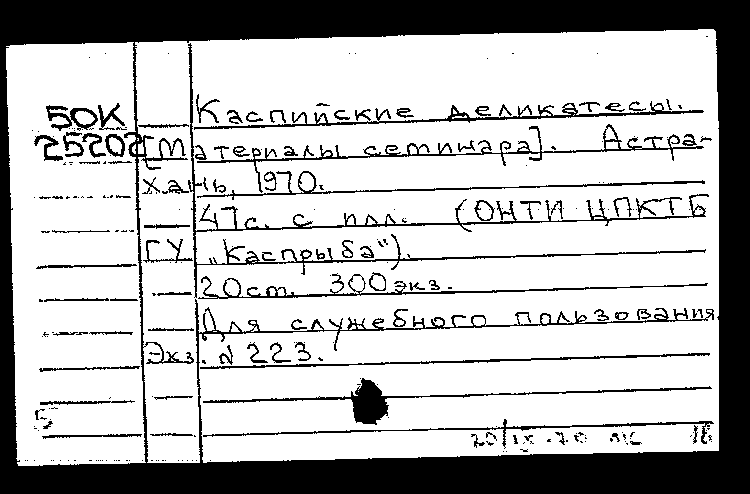 50К Каспийские деликатесы.
25202 [Материалы семинара]. Астра-
хань, 1970.
47с. с илл. (ОНТИ ЦПКТБ
ГУ „Каспрыба").
20см. 300экз.
Для служебного пользования.
Экз. № 223.
5
20/IX-70 18